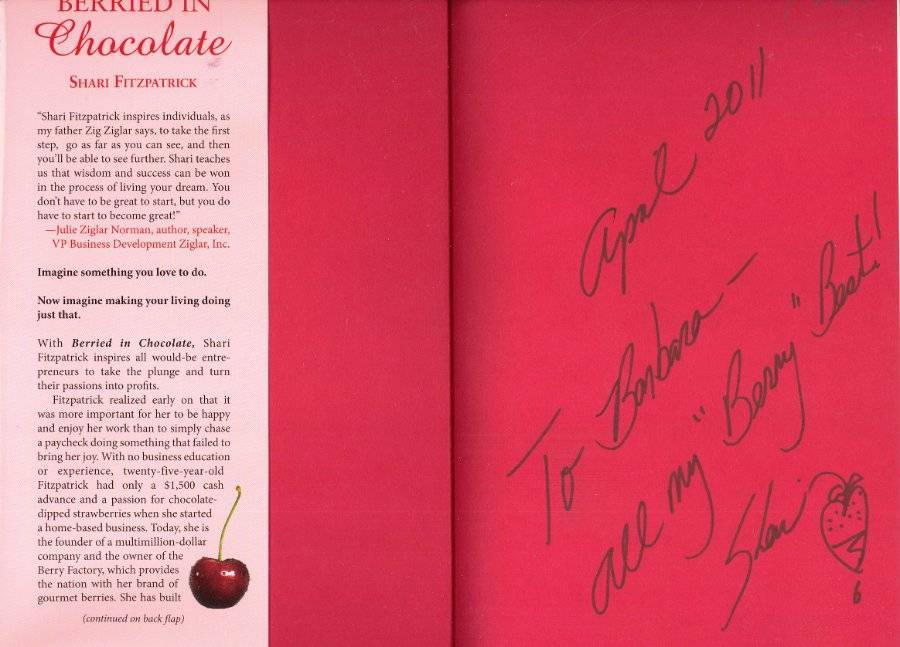 BERRIED IN
Chocolate
SHARI FITZPATRICK
“Shari Fitzpatrick inspires individuals, as
my father Zig Ziglar says, to take the first
step, go as far as you can see, and then
you’ll be able to see further. Shari teaches
us that wisdom and success can be won
in the process of living your dream. You
don’t have to be great to start, but you do
have to start to become great!”
—Julie Ziglar Norman, author, speaker,
VP Business Development Ziglar, Inc.
Imagine something you love to do.
Now imagine making your living doing
just that.
With Berried in Chocolate, Shari
Fitzpatrick inspires all would-be entre-
preneurs to take the plunge and turn
their passions into profits.
Fitzpatrick realized early on that it
was more important for her to be happy
and enjoy her work than to simply chase
a paycheck doing something that failed to
bring her joy. With no business education
or experience, twenty-five-year-old
Fitzpatrick had only a $1,500 cash
advance and a passion for chocolate-
dipped strawberries when she started
a home-based business. Today, she is
the founder of a multimillion-dollar
company and the owner of the
Berry Factory, which provides
the nation with her brand of
gourmet berries. She has built
(continued on back flap)
April 2011
To Barbara -
all my "Berry" Best!
Shari
6